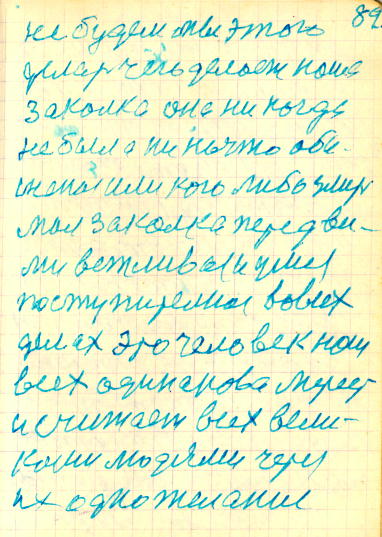 89.
не будем мы этого
делар чего делает наша
закалка она ни когда
небыла ни начто оби-
или кого либо
моя закалка перед ви-
ми вежливая и
поступи во всех
делах это человек нам
всех одинакова
и считает всех вели-
ками людями через
их одно желание